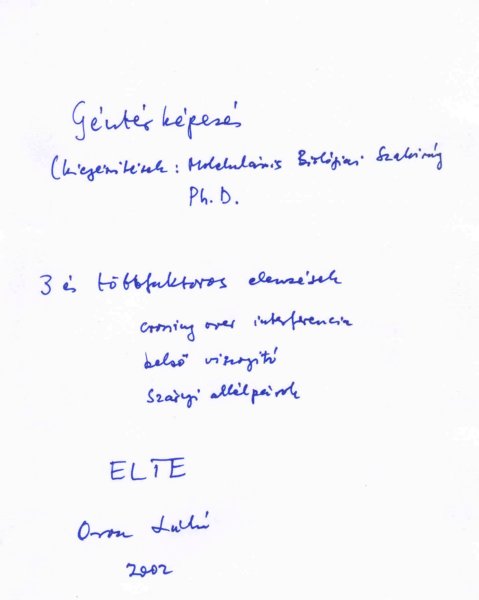 Géntérképezés
(kiegészítések: Molekuláris Biológiai Szakirány
Ph. D.
3 és többfaktoros elemzések
crossing over interferencia
belső viszonyító
Szárnyi allélpárok
ELTE
Orosz László
2002